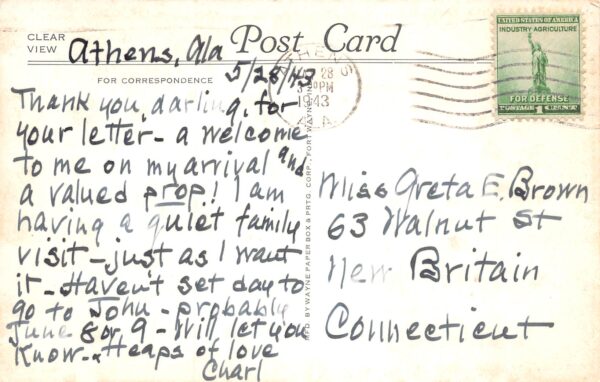 CLEAR
VIEW
Post Card
Athens, Ala
5/28/43
FOR CORRESPONDENCE
Thank you, darling, for
your letter - a welcome
to me on my arrival and
a valued prop! I am
having a quiet family
visit - just as I want
it - Haven't set day to
go to John - probably
June 8 or 9 - Will let you
know - Heaps of love
Charl
M'F'D BY WAYNE PAPER BOX & PRTG. CORP., FORT WAYNE, IND.
ATHENS
28
PM
1943
ALA.
UNITED STATES OF AMERICA
INDUSTRY AGRICULTURE
FOR DEFENSE
POSTAGE 1 CENT
Miss Greta E. Brown
63 Walnut St
New Britain
Connecticut